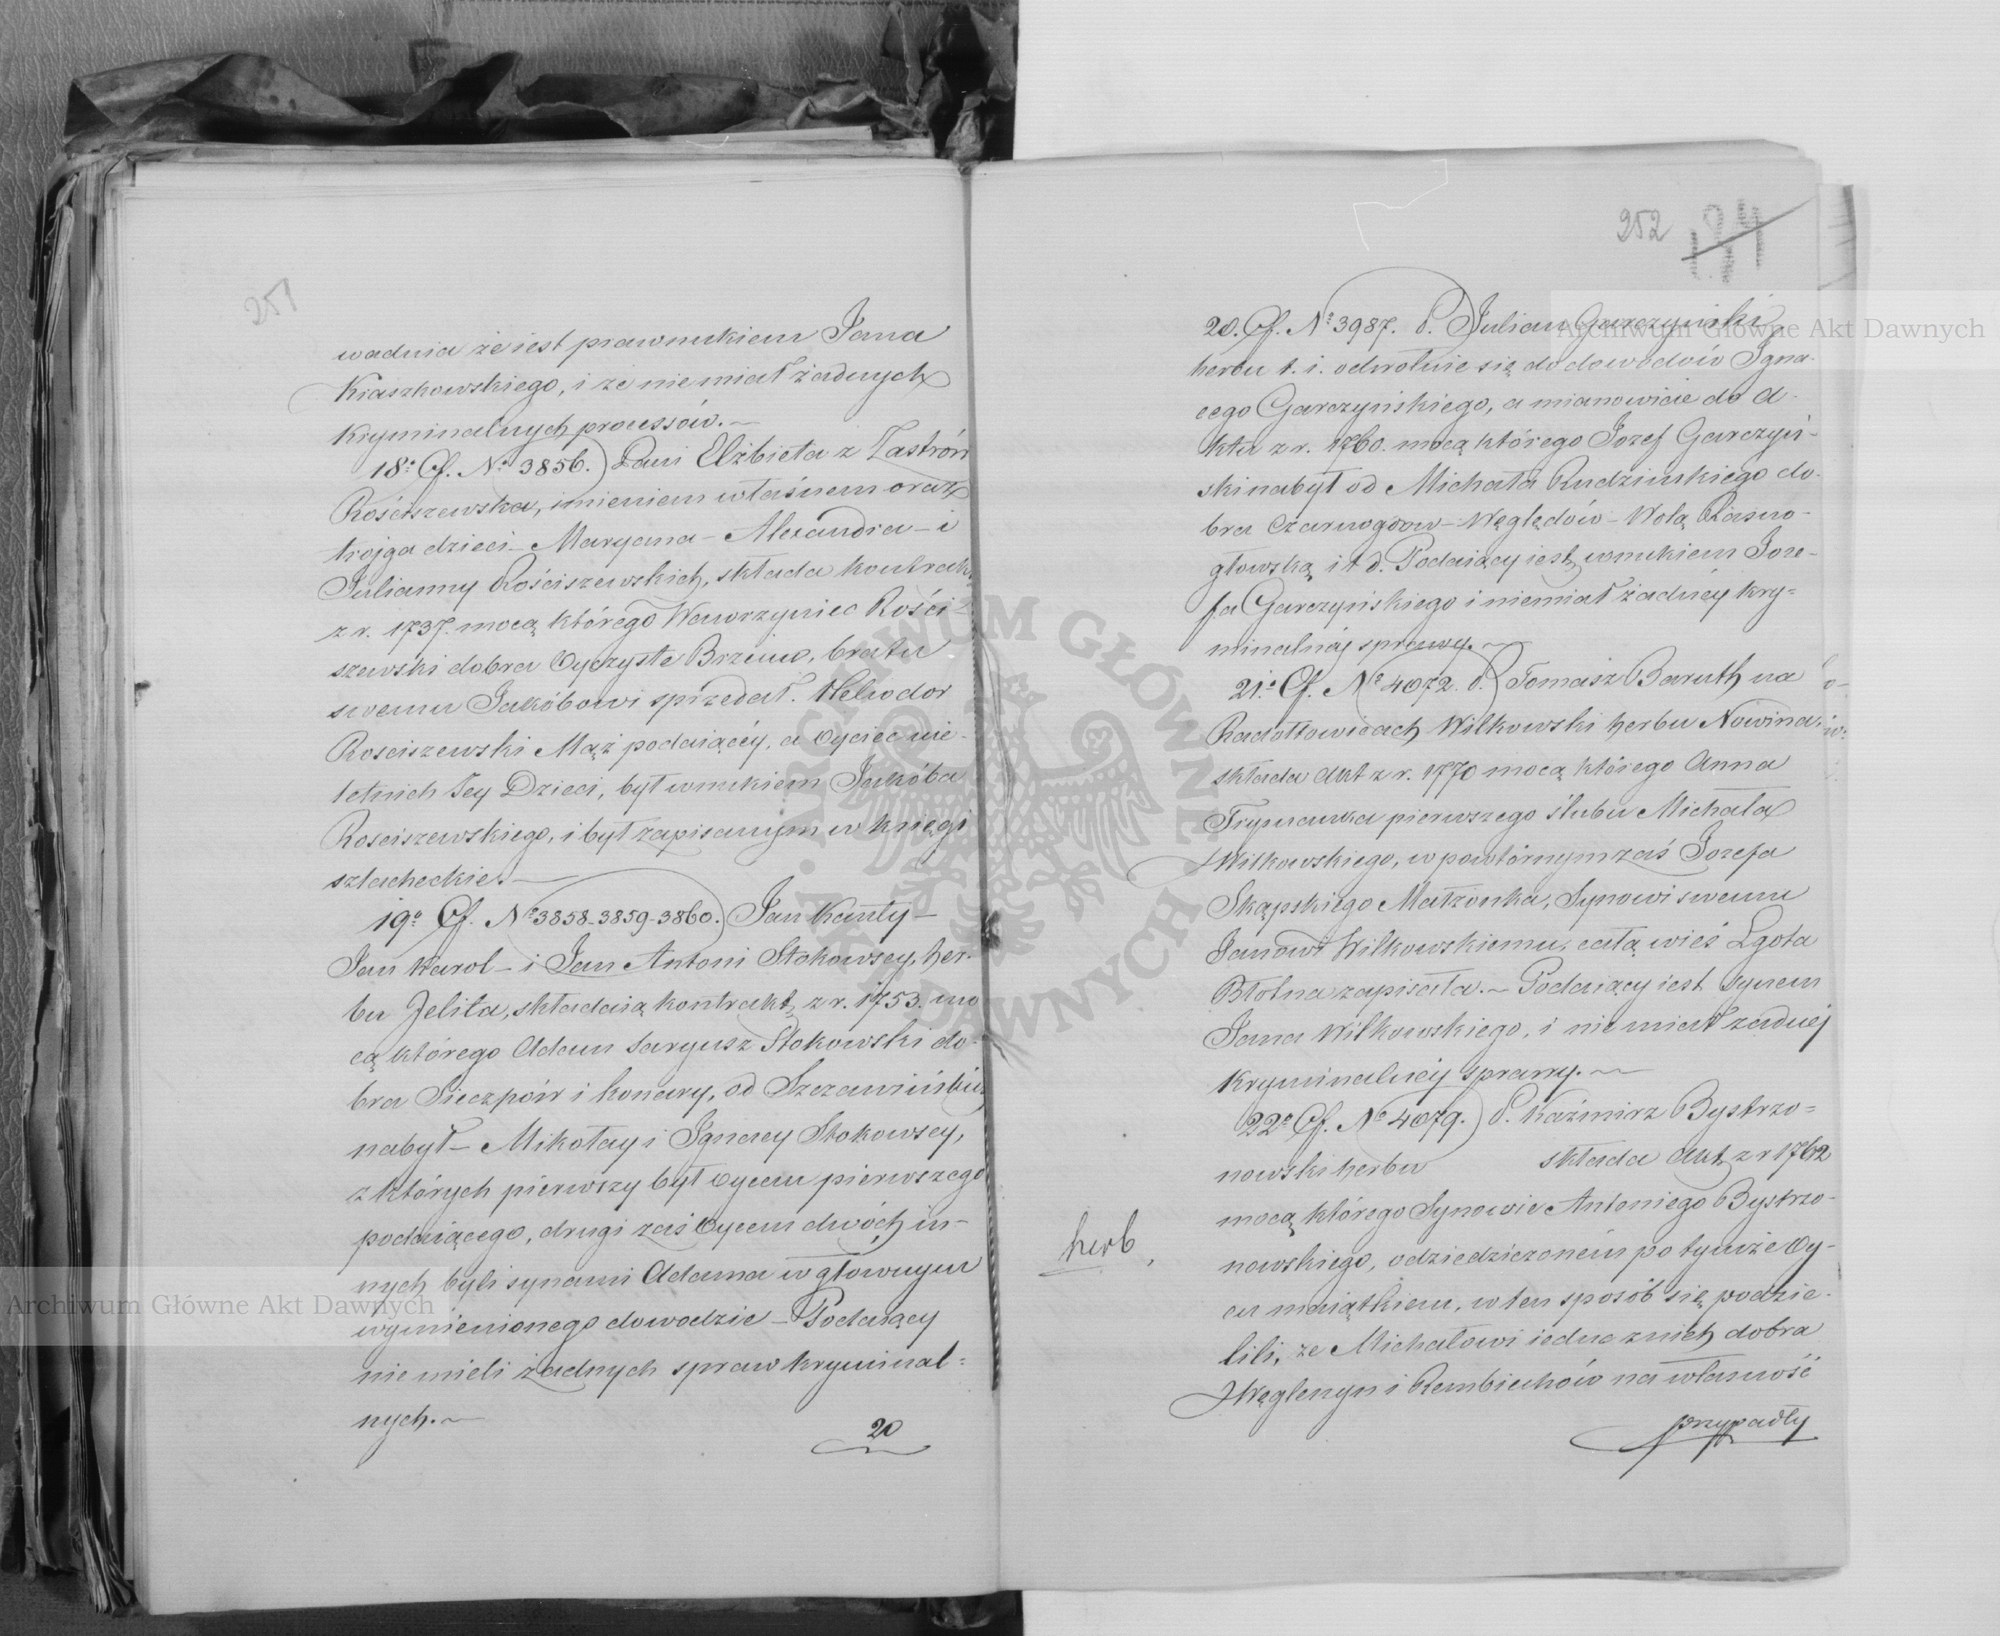 251
wadnia że iest prawnukiem Jana
Kraszkowskiego, i że niemiał żadnych
kryminalnych processów.—
18º Cf. Nº 3856.) Pani Elżbieta z Zastrów
Rościszewska, imieniem własnem oraz
trojga dzieci – Maryana – Alexandra – i
Julianny Rościszewskich, składa kontrakt
z r. 1737. mocą którego Wawrzyniec Rości=
szewski dobra Oyczyste Brzeino, bratu
swemu Jakóbowi sprzedał. Heliodor
Rosciszewski Mąż podaiącéy, a Oyciec nie-
letnich Jey Dzieci, był wnukiem Jakóba
Rosciszewskiego, i był zapisanym w księgi
szlacheckie.—
19º Cf. Nº 3858-3859-3860.) Jan Kanty –
Jan Karol – i Jan Antoni Stokowscy, her-
bu Jelita, składaią kontrakt z r. 1753. mo
cą którego Adam Saryusz Stokowski do-
bra Sieczpór i Konary, od Szczawińskich
nabył – Mikołay i Ignacy Stokowscy,
z których pierwszy był Oycem pierwszego
podaiącego, drugi zaś Oycem dwóch in-
nych byli synami Adama w głownym
wymienionego dowodzie – Podaiący
nie mieli żadnych spraw kryminal=
nych.—
20
252
20. Cf. Nº 3987. P.) Julian Garczyński
herbu t. i. odwołuie się do dowodów Igna-
cego Garczyńskiego, a mianowicie do A-
ktu z r. 1760. mocą którego Jozef Garczyń-
ski nabył od Michała Rudzinskiego do-
bra Czarnogoow – Węgłedów – Wolą
głowską i t d. Podaiący iest wnukiem Joze-
fa Garczyńskiego i niemiał żadnéy kry=
minalnéj sprawy.—
21º Cf. Nº 4072. P.) Tomasz Baruth na
Radołtowicach Wilkowski herbu Nowina,
składa Akt z r. 1770 mocą którego Anna
pierwszego ślubu Michała
Wilkowskiego, w powtórnym zaś Jozefa
Skąpskiego Małżonka, Synowi swemu
Janowi Wilkowskiemu, całą wieś Lgota
Błotna zapisała.— Podaiący iest Synem
Jana Wilkowskiego, i nie miał żadnéj
Kryminalnéj sprawy.—
22º Cf. Nº 4079.) P. Kaźmirz Bystrzo=
nowski herbu składa Akt z r 1762
mocą którego Synowie Antoniego Bystrzo-
nowskiego, odziedziczoném po tymże Oy-
cu maiątkiem, w ten sposób się podzie-
lili, że Michałowi iedne z nich dobra
Węglenyn i Rembiechów na własność
przypadły
herb
Archiwum Główne Akt Dawnych
Archiwum Główne Akt Dawnych
ARCHIWUM GŁÓWNE AKT DAWNYCH